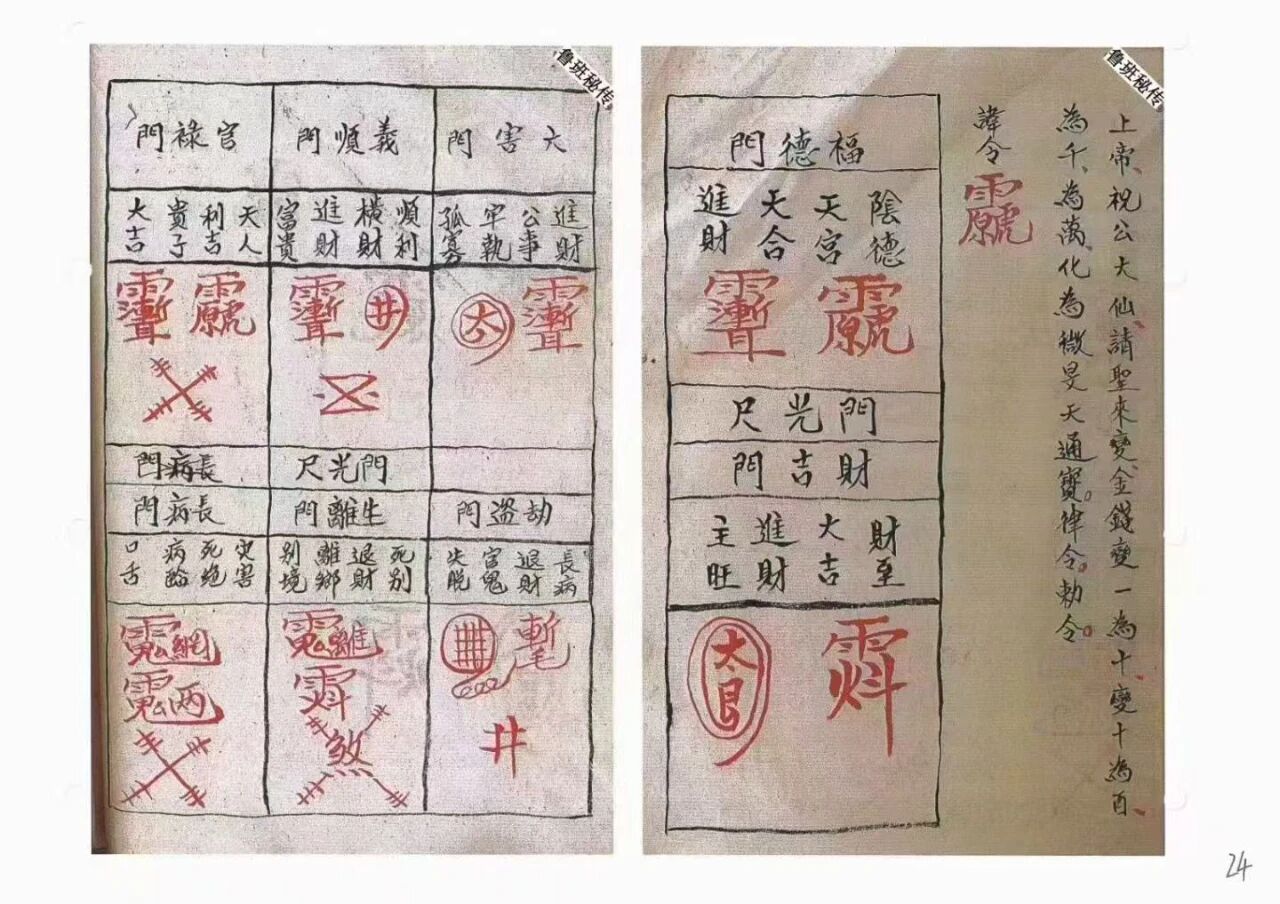 魯班秘传
上帝、祝公大仙、請聖來變、金錢變一為十、變十為百、
為千、為萬、化為微旻天通寶。律令。勅令。
諱令
福德門
陰德
天宮
天合
進財
門光尺
財吉門
財至
大吉
進財
主旺
魯班秘传
大害門
進財
公事
牢執
孤寡
劫盗門
長病
退財
官鬼
失脫
井
義順門
順利
橫財
進財
富貴
門光尺
生離門
死別
退財
離鄉
別境
煞
官祿門
天人
利吉
貴子
大吉
長病門
長病門
灾害
死絕
口舌
24